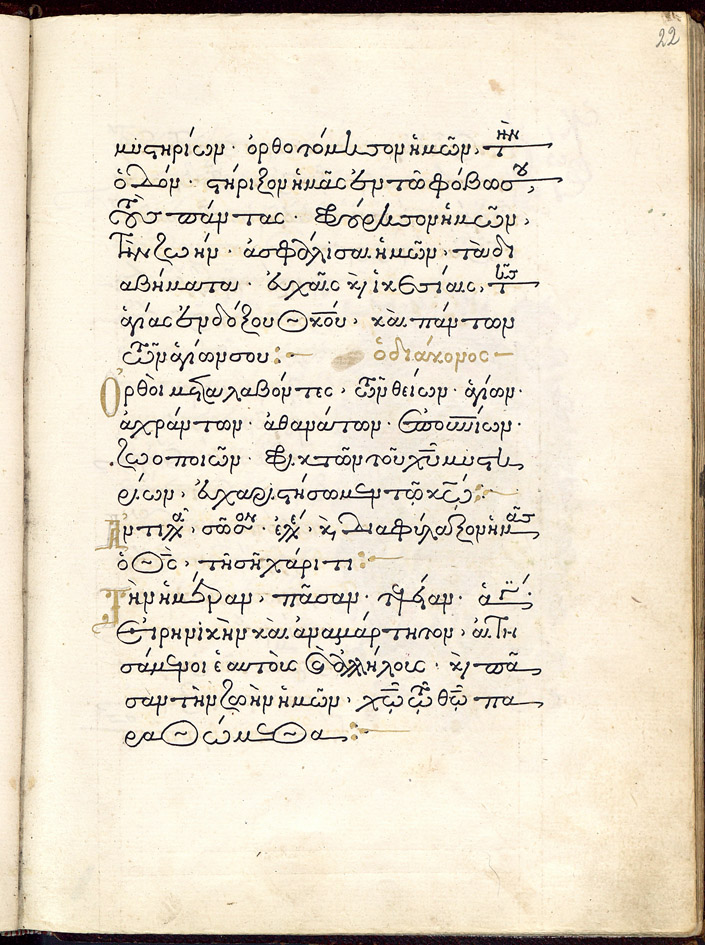 22
μυστηρίων· ὀρθοτόμησον ἡμῶν, τὴν
ὁδόν· στήριξον ἡμᾶς ἐν τῷ φόβῳ σου,
τοὺς πάντας· φρούρησον ἡμῶν,
τὴν ζωήν· ἀσφάλισαι ἡμῶν· τὰ δι
αβήματα· εὐχαῖς κ(αὶ) ἱκεσίαις, τῆς
ἁγίας ἐνδόξου Θκου, καὶ πάντων
τῶν ἁγίων σου:~ ὁ διάκονος
Ὀρθοὶ μεταλαβόντες, τῶν θείων· ἁγίων·
ἀχράντων· ἀθανάτων· ἐπουνίων·
ζωοποιῶν· φρικτῶν τοῦ χυ μυστη
ρίων, εὐχαριστήσωμεν τῷ κω:~
Ἀντιλα, σῶσον· ἐλε, κ(αὶ) διαφύλαξον ἡμᾶς
ὁ Θς, τῇ σῇ χάριτι:~
Τὴν ἡμέραν, πᾶσαν· τελείαν· ἁγί·
εἰρηνικὴν καὶ ἀναμάρτητον, αἰτη
σάμενοι ἑαυτοὺς καὶ ἀλλήλους· κ(αὶ) πᾶ
σαν τὴν ζωὴν ἡμῶν, χω τῷ θω πα
ραθώμεθα:~